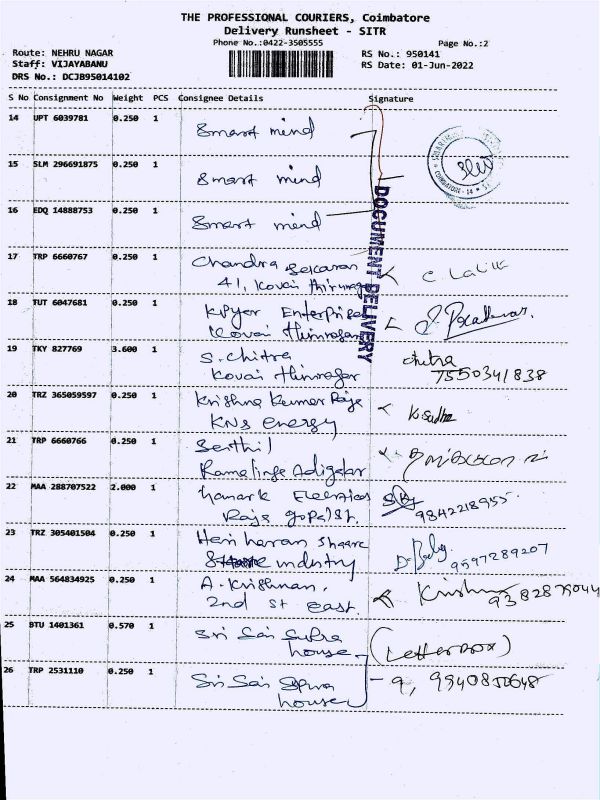 THE PROFESSIONAL COURIERS, Coimbatore
Delivery Runsheet - SITR
Phone No.:0422-3505555
Page No.:2
Route: NEHRU NAGAR
RS No.: 950141
Staff: VIJAYABANU
RS Date: 01-Jun-2022
DRS No.: DCJB95014102
S No Consignment No Weight PCS Consignee Details Signature
14 UPT 6039781 0.250 1 Smart mind
15 SLM 296691875 0.250 1 Smart mind
16 EDQ 14888753 0.250 1 Smart mind
COIMBATORE - 14
DOCUMENT DELIVERY
17 TRP 6660767 0.250 1 Chandra Sekaran
41, Kovai thirunagar
C. Lalik
18 TUT 6047681 0.250 1 Enterprises
Kovai thirunagar
19 TKY 827769 3.600 1 S. Chitra
Kovai thirunagar
chitra
7550341838
20 TRZ 365059597 0.250 1 Krishna Kumar Raja
KNS energy
K. Sudha
21 TRP 6660766 0.250 1 Senthil
Ramalinga Adigalar
22 MAA 288707522 2.000 1 Electricals
Raja gopal St.
9842218955
23 TRZ 305401504 0.250 1 Hari haran Shaare
industry
9597289207
24 MAA 564834925 0.250 1 A. Krishnan,
2nd St east.
Krishna
25 BTU 1401361 0.570 1 Sri Sai Supra
house
(Letter Box)
26 TRP 2531110 0.250 1 Sri Sai Supra
house